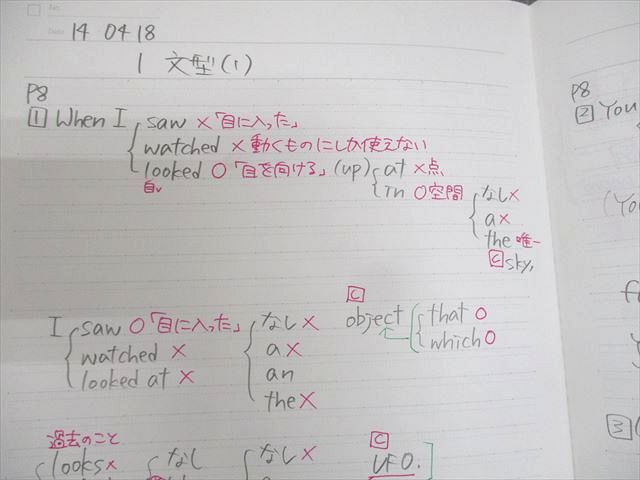 No.
Date 14 04 18
1 文型(1)
P8
1 When I saw ×「目に入った」
watched × 動くものにしか使えない
looked ○「目を向ける」(up) at ×点
自v in ○空間 なし×
a×
the 唯一
C sky,
I saw ○「目に入った」 なし× C object that ○
watched × a × which ○
looked at × an
the ×
過去のこと C
looks × なし なし× UFO.
P8
2 You
(You
3